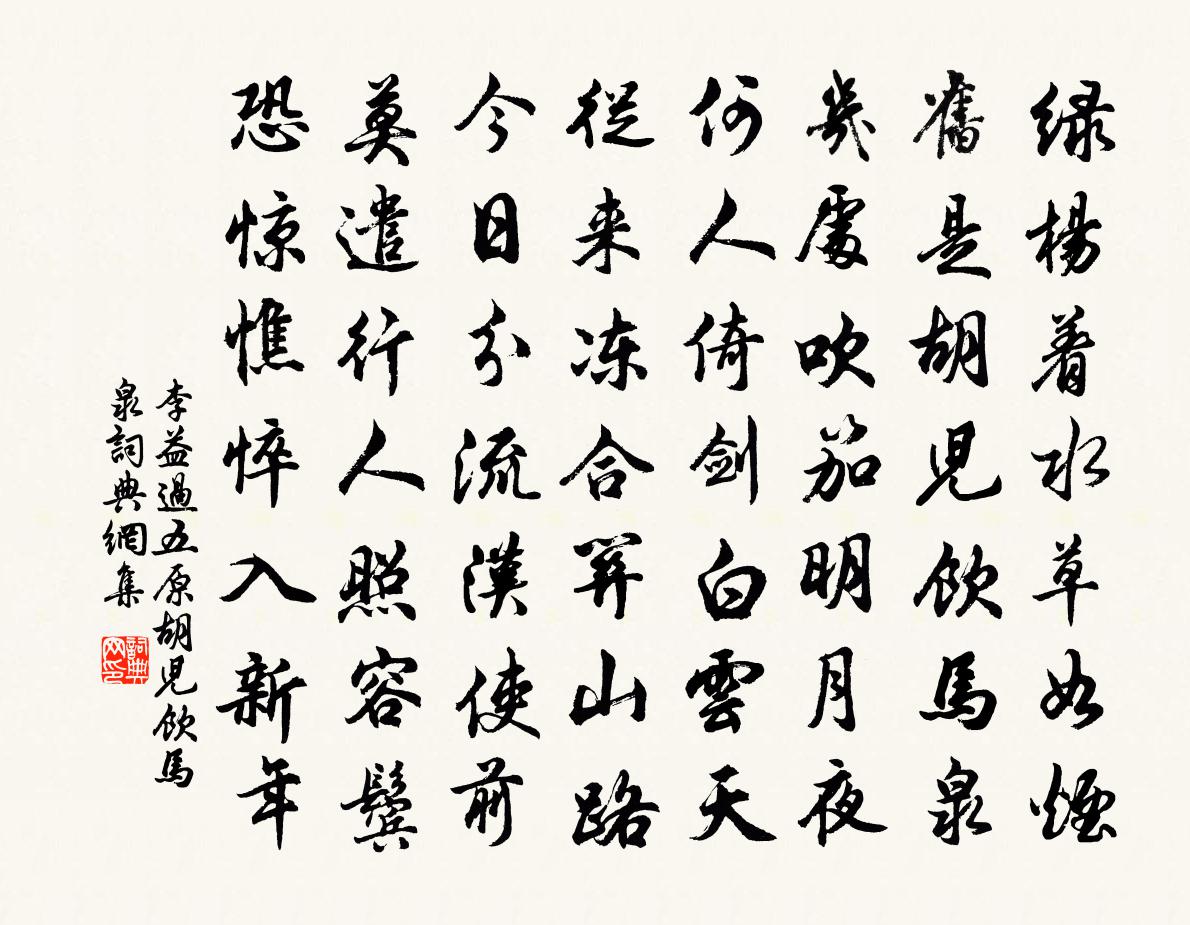 绿楊着水草如煙
舊是胡児飲馬泉
幾處吹笳明月夜
何人倚劍白雲天
従来冻合関山路
今日分流漢使前
莫遣行人照容鬓
恐惊憔悴入新年
李益過五原胡児飲馬
泉詞典網集
詞典
网印